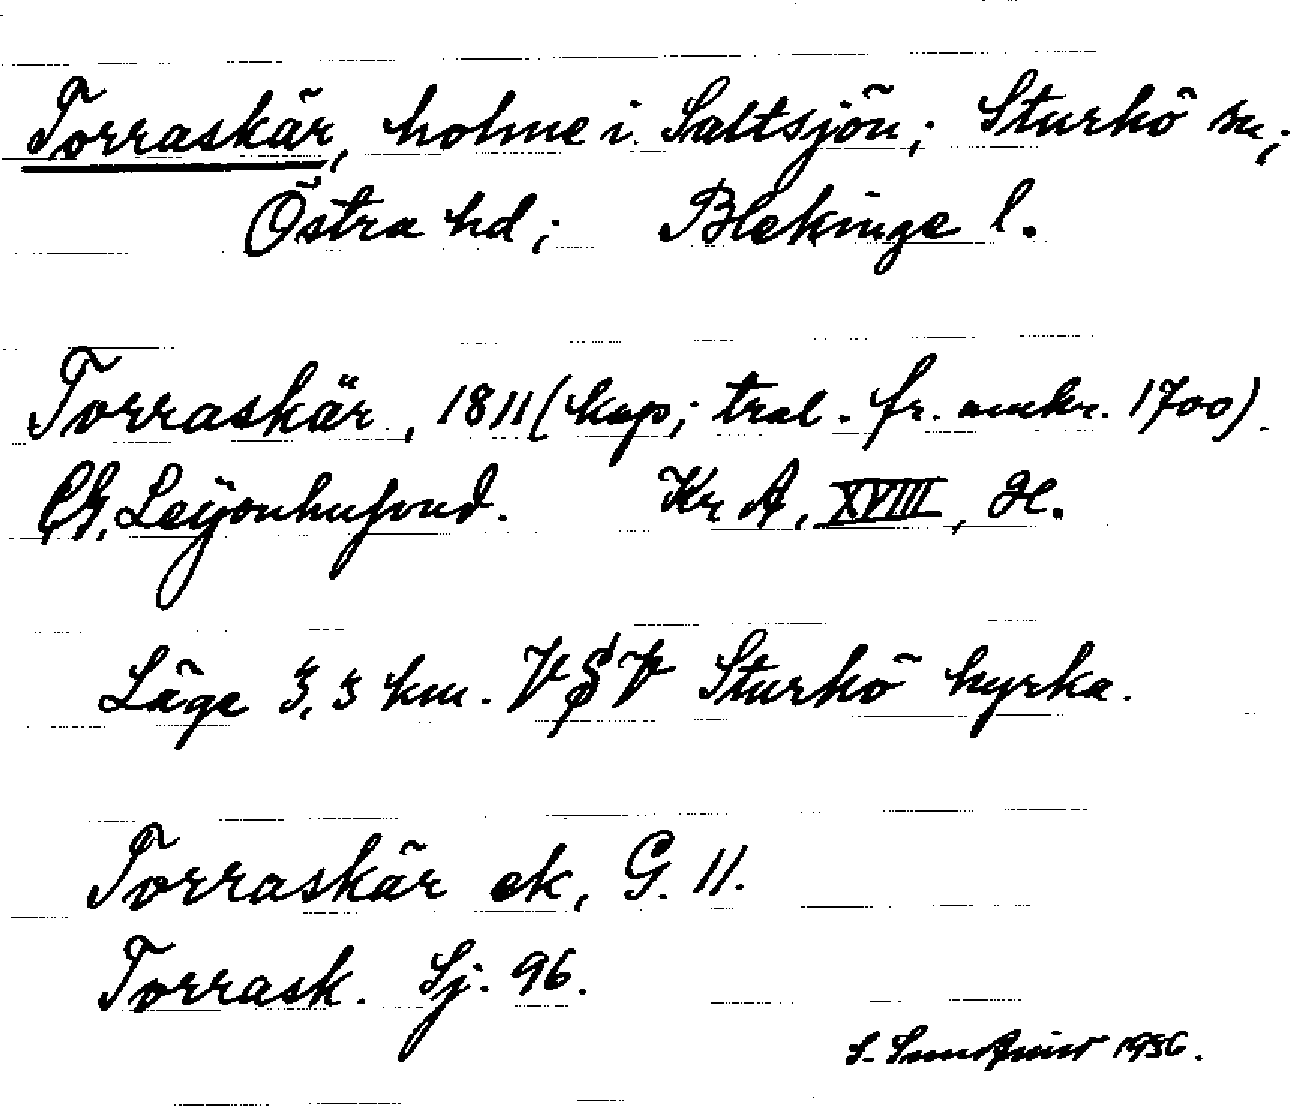 Torraskär, holme i Saltsjön; Sturkö sn;
Östra hd; Blekinge l.
Torraskär, 1811 (kop; tral. fr. omkr. 1700).
Ch. Leÿonhufvud. Kr A, XVIII, H.
Läge 3,3 km. VSV Sturkö kyrka.
Torraskär ek, G. 11.
Torrask. Sj. 96.
S. 1936.